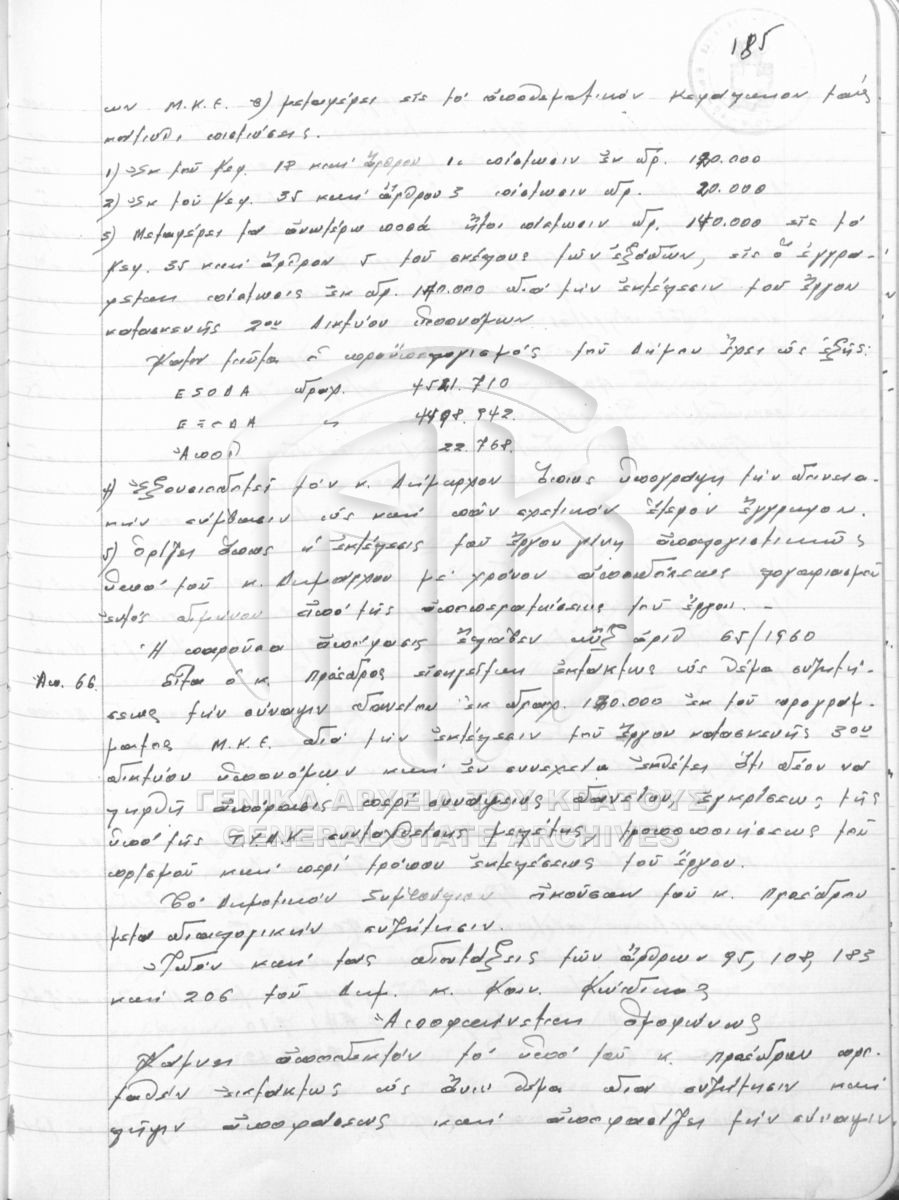 185
των Μ.Κ.Ε. β) μεταφέρει εἰς τό ἀποθεματικόν κεφάλαιον τάς
κάτωθι πιστώσεις.
1) Ἐκ τοῦ Κεφ. 17 καί ἄρθρου 1 πίστωσιν ἐκ δρ. 120.000
2) Ἐκ τοῦ Κεφ. 35 καί ἄρθρου 3 πίστωσιν δρ. 20.000
3) Μεταφέρει τά ἀνωτέρω ποσά ἤτοι πίστωσιν δρ. 140.000 εἰς τό
Κεφ. 35 καί ἄρθρον 5 τοῦ σκέλους τῶν ἐξόδων, εἰς ὅ ἐγγρά-
φεται πίστωσις ἐκ δρ. 140.000 διά τήν ἐκτέλεσιν τοῦ ἔργου
κατασκευῆς 2ου Δικτύου ὑπονόμων
Κατόν ταῦτα ὁ προϋπολογισμός τοῦ Δήμου ἔχει ὡς ἑξῆς:
ΕΣΟΔΑ δραχ. 4521.710
ΕΞΟΔΑ " 4498.942
Ἀποθ 22.768.
4) Ἐξουσιοδοτεῖ τόν κ. Δήμαρχον ὅπως ὑπογράψη τήν δανεια-
κήν σύμβασιν ὡς καί πᾶν σχετικόν ἕτερον ἔγγραφον.
5) Ὁρίζει ὅπως ἡ ἐκτέλεσις τοῦ ἔργου γίνη ἀπολογιστικῶς
ὑπό τοῦ κ. Δημάρχου μέ χρόνον ἀποδόσεως λογαριασμοῦ
ἐντός διμήνου ἀπό τῆς ἀποπερατώσεως τοῦ ἔργου. -
Ἡ παροῦσα ἀπόφασις ἔλαβεν αὔξ ἀριθ 65/1960
Απ. 66. Εἶτα ὁ κ. Πρόεδρος εἰσηγεῖται ἐκτάκτως ὡς θέμα συζητή-
σεως τήν σύναψιν δανείου ἐκ δραχ. 120.000 ἐκ τοῦ προγράμ-
ματος Μ.Κ.Ε. διά τήν ἐκτέλεσιν τοῦ ἔργου κατασκευῆς 3ου
δικτύου ὑπονόμων καί ἐν συνεχεία ἐκθέτει ὅτι δέον νά
ληφθῆ ἀπόφασις περί συνάψεως δανείου, ἐγκρίσεως τῆς
ὑπό τῆς Τ.Υ.Δ.Κ συνταχθείσης μελέτης, τροποποιήσεως τοῦ
ὁρισμοῦ καί περί τρόπου ἐκτελέσεως τοῦ ἔργου.
Τό Δημοτικόν Συμβούλιον ἀκούσαν τοῦ κ. Προέδρου
μετά διαλογικήν συζήτησιν.
Ἰδόν καί τάς διατάξεις τῶν ἄρθρων 95, 108, 183
καί 206 τοῦ Δημ. κ. Κοιν. Κώδικος
Ἀποφαίνεται ὁμοφώνως
Κάμνει ἀποδεκτόν τό ὑπό τοῦ κ. Προέδρου προ-
ταθέν ἐκτάκτως ὡς ἄνω θέμα διά συζήτησιν καί
λῆψιν ἀποφάσεως καί ἀποφασίζει τήν σύναψιν
ΓΕΝΙΚΑ ΑΡΧΕΙΑ ΤΟΥ ΚΡΑΤΟΥΣ
GENERAL STATE ARCHIVES